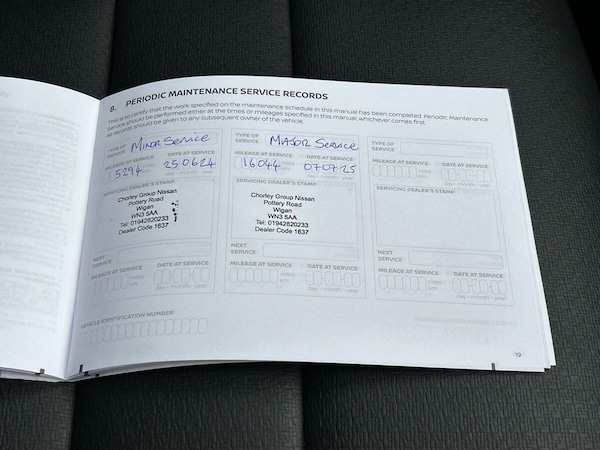 8. PERIODIC MAINTENANCE SERVICE RECORDS
This is to certify that the work specified on the maintenance schedule in this manual has been completed. Periodic Maintenance
Service should be performed either at the times or mileages specified in this manual, whichever comes first.
All records should be given to any subsequent owner of the vehicle.
TYPE OF SERVICE Minor Service
MILEAGE AT SERVICE DATE AT SERVICE
5294 miles km 25.06.24
day - month - year
SERVICING DEALER'S STAMP
Chorley Group Nissan
Pottery Road
Wigan
WN3 5AA
Tel: 01942820233
Dealer Code 1637
NEXT SERVICE
MILEAGE AT SERVICE DATE AT SERVICE
miles km
day - month - year
TYPE OF SERVICE MAJOR Service
MILEAGE AT SERVICE DATE AT SERVICE
16044 07.07.25
day - month - year
SERVICING DEALER'S STAMP
Chorley Group Nissan
Pottery Road
Wigan
WN3 5AA
Tel: 01942820233
Dealer Code 1637
NEXT SERVICE
MILEAGE AT SERVICE DATE AT SERVICE
miles km
day - month - year
TYPE OF SERVICE
MILEAGE AT SERVICE DATE AT SERVICE
miles km
day - month - year
SERVICING DEALER'S STAMP
NEXT SERVICE
MILEAGE AT SERVICE DATE AT SERVICE
miles km
day - month - year
VEHICLE IDENTIFICATION NUMBER
19